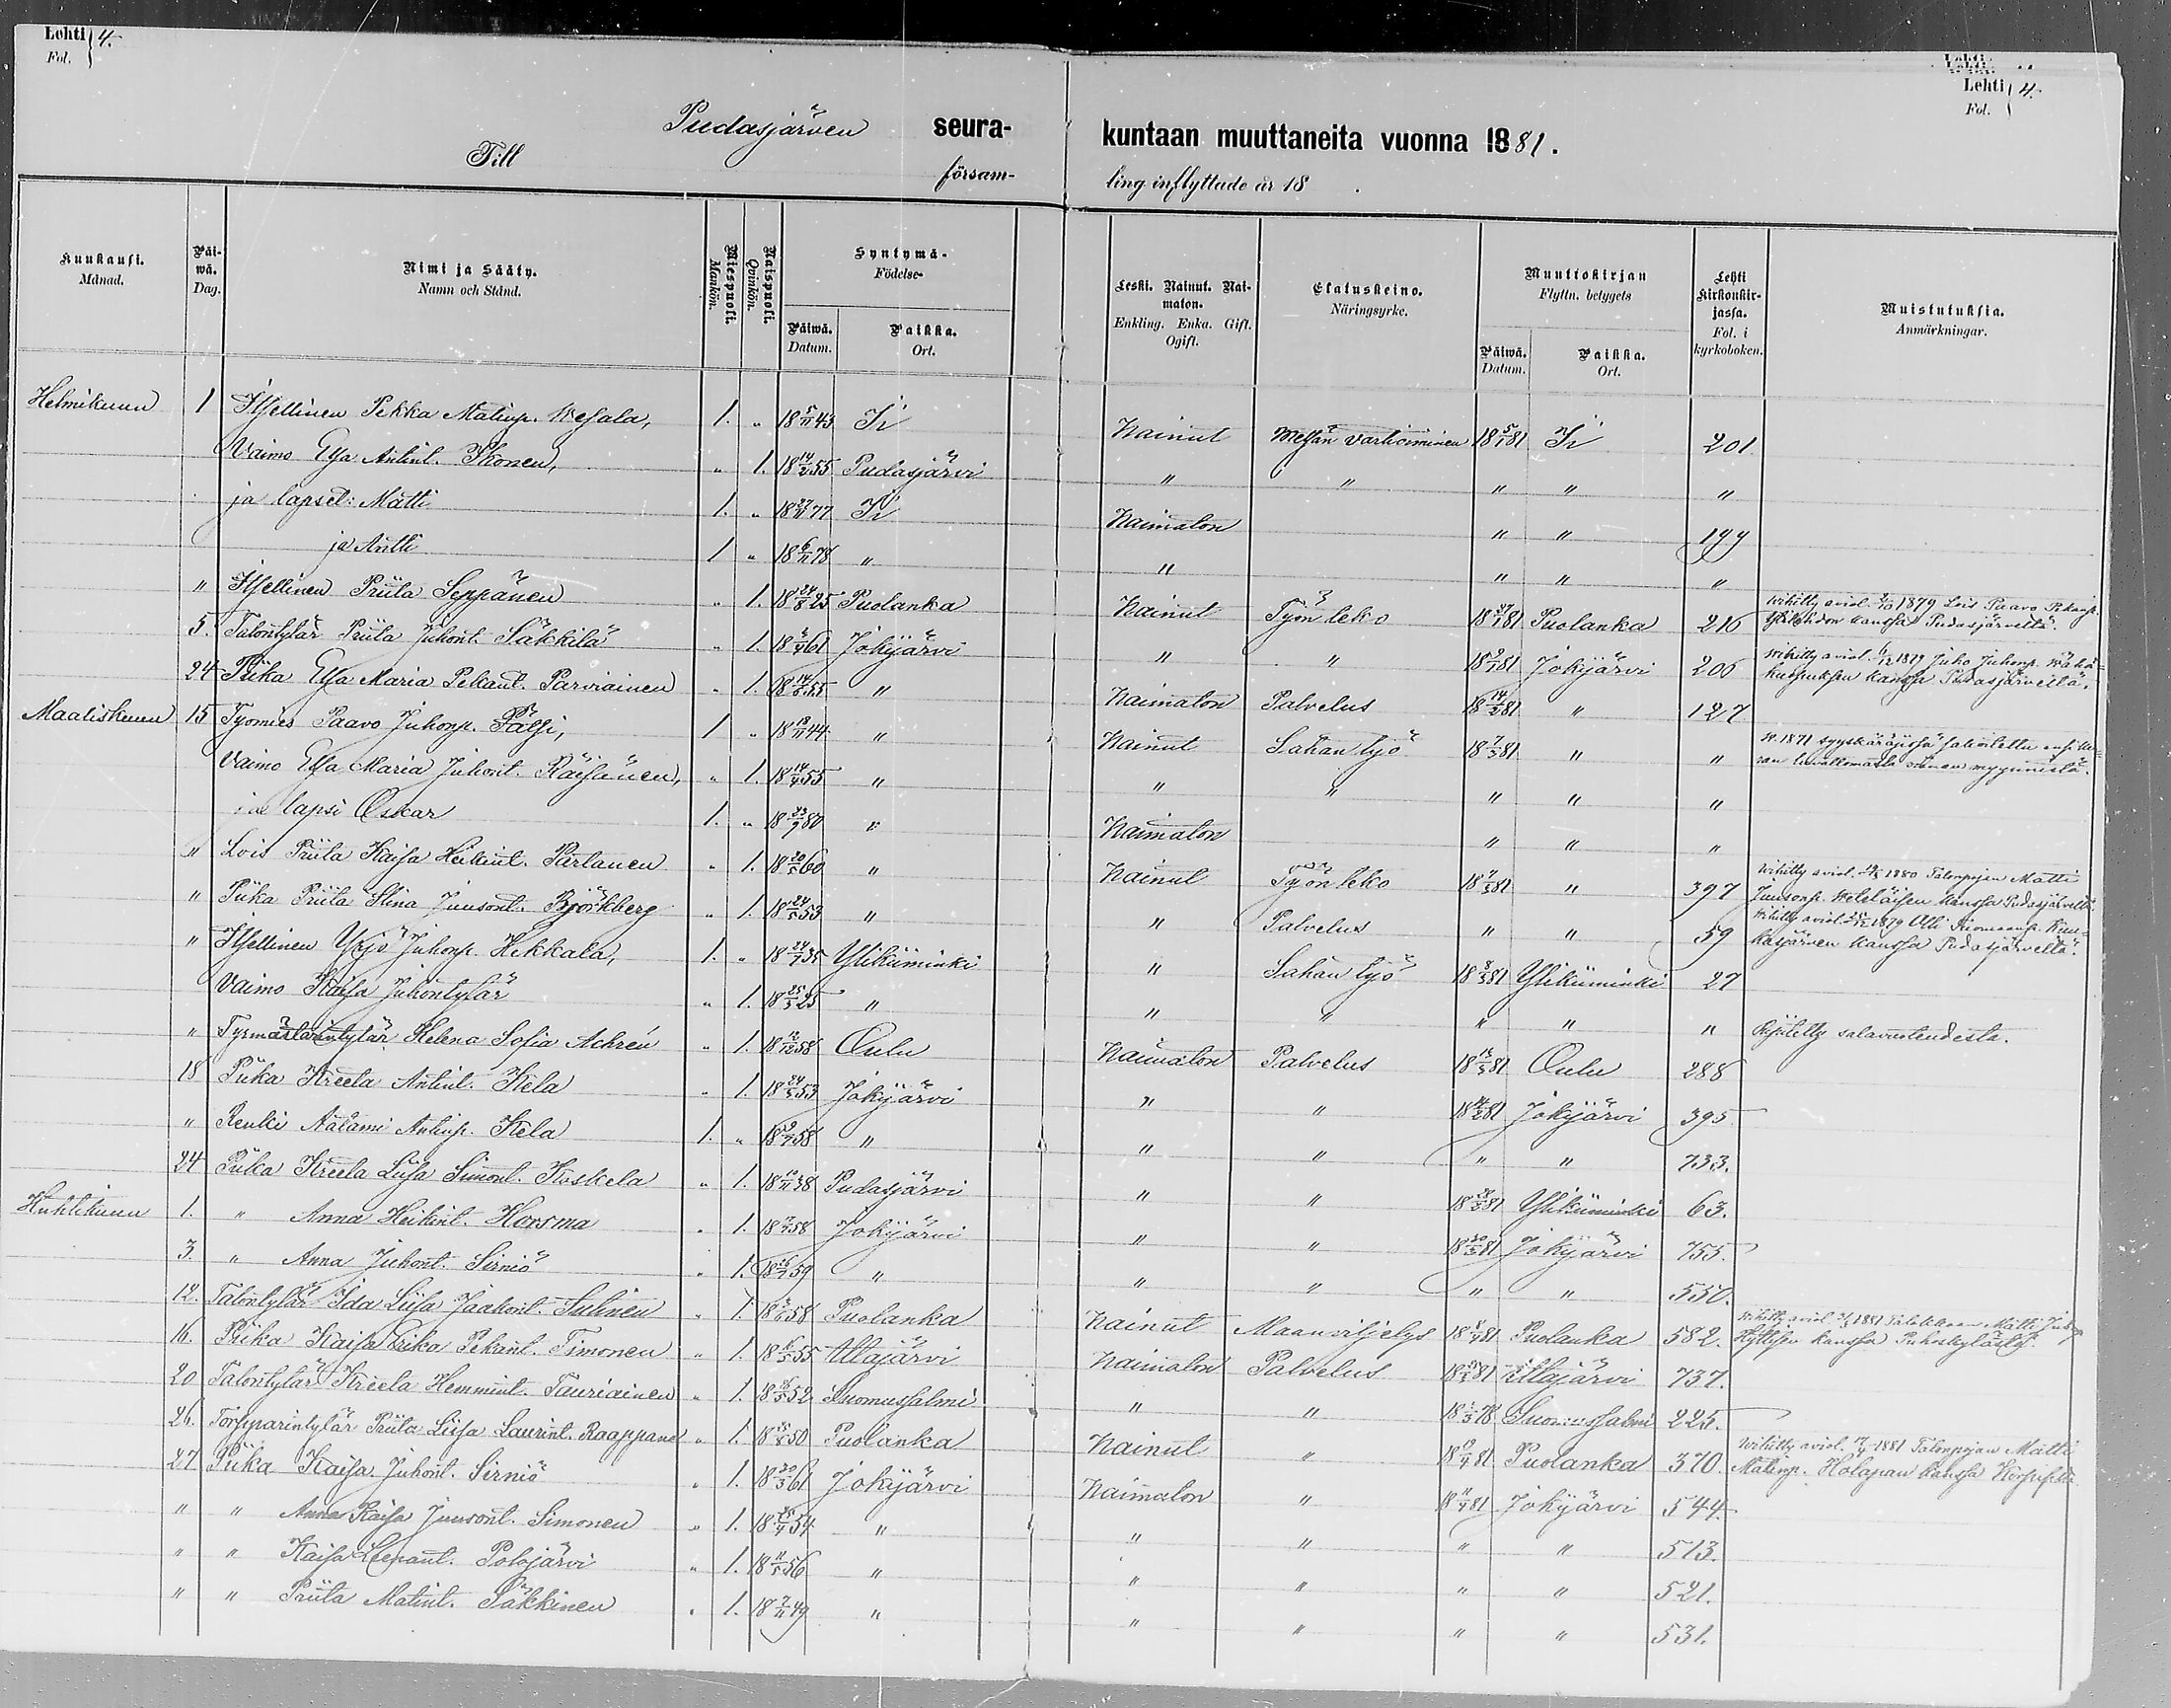 Lehti 4.
Fol.
Lehti 4.
Fol.
Pudasjärven seura- kuntaan muuttaneita vuonna 1881.
Till försam- ling inflyttade år 18 .
Kuukausi. Månad.
Päiwä. Dag.
Nimi ja Sääty. Namn och Stånd.
Miespuoli. Mankön.
Naispuoli. Qvinkön.
Syntymä- Födelse-
Päiwä. Datum.
Paikka. Ort.
Leski. Nainut. Naimaton. Enkling. Enka. Gift. Ogift.
Elatuskeino. Näringsyrke.
Muuttokirjan Flyttn. betygets
Päiwä. Datum.
Paikka. Ort.
Lehti Kirkonkirjassa. Fol. i kyrkoboken.
Muistutuksia. Anmärkningar.
Helmikuun 1 Itsellinen Pekka Matinp. Wesala, 1. " 18 5/11 43 Ii Nainut Metsän vartioiminen 18 5/1 81 Ii 201.
Vaimo Elsa Antint. Ikonen, " 1. 18 14/2 55 Pudasjärvi " " " " "
ja lapset: Matti 1. " 18 77 Ii Naimaton " " 199
ja Antti 1 " 18 6/11 78 " " " " "
" Itsellinen Priita Seppänen " 1. 18 24/8 25 Puolanka Nainut Työn teko 18 81 Puolanka 216 Wihitty aviol. 1879 Lois Paavo kanssa Pudasjärveltä.
5. Talontytär Priita Juhont. Säkkilä " 1. 18 61 Jokijärvi " " 18 81 Jokijärvi 206 Wihitty aviol. 1879 Juho Juhonp. kanssa Pudasjärveltä.
24 Piika Elsa Maria Pekant. Parviainen " 1. 18 55 " Naimaton Palvelus 18 14/2 81 " 127
Maaliskuun 15 Työmies Paavo Juhonp. Pätsi, 1 " 18 44 " Nainut Sahan työ 18 7/3 81 " " W. 1871 syyskäräjissä sakoitettu luvattomasta viinan myynnistä.
Vaimo Elsa Maria Juhont. Räisänen, " 1. 18 14/4 55 " " " " " "
ja lapsi Oskar 1. " 18 23/9 80 " Naimaton " " "
" Lois Priita Kaisa Heikint. Partanen " 1. 18 20/5 60 " Nainut Työn teko 18 7/3 81 " 397 Wihitty aviol. 1880 Talonpojan Matti Juusonp. kanssa Pudasjärveltä.
" Piika Priita Stina Juusont. Björkberg " 1. 18 24/5 53 " " Palvelus " " 59 Wihitty aviol. 1879 Olli kanssa Pudasjärveltä.
" Itsellinen Yrjö Juhonp. Hekkala, 1. " 18 24/7 35 Ylikiiminki " Sahan työ 18 8/3 81 Ylikiiminki 27
Vaimo Kaisa Juhontytär " 1. 18 25/3 25 " " " " " "
" Helena Sofia Achrén " 1. 18 58 Oulu Naimaton Palvelus 18 81 Oulu 288 Ripitetty salavuoteudesta.
18 Piika Kreeta Antint. Kela " 1. 18 24/5 53 Jokijärvi " " 18 81 Jokijärvi 395
" Renki Aatami Antinp. Kela 1. " 18 58 " " " " " 733.
24 Piika Kreeta Liisa Simont. Koskela " 1. 18 38 Pudasjärvi " " 18 81 Ylikiiminki 63.
Huhtikuun 1. " Anna Heikint. Horsma " 1. 18 58 Jokijärvi " " 18 81 Jokijärvi 755.
3. " Anna Juhont. Sirniö " 1. 18 59 " " " " " 550.
12. Talontytär Ida Liisa Jaakont. Suhinen " 1. 18 58 Puolanka Nainut Maanviljelys 18 81 Puolanka 582. Wihitty aviol. 1881 Matti kanssa
16. Piika Kaisa Erika Pekant. Timonen " 1. 18 55 Utajärvi Naimaton Palvelus 18 81 Utajärvi 737.
20 Talontytär Kreeta Hemmint. Tauriainen " 1. 18 52 Suomussalmi " " 18 78 Suomussalmi 225.
26. Torpparintytär Priita Liisa Laurint. Raappana " 1. 18 50 Puolanka Nainut " 18 81 Puolanka 370. Wihitty aviol. 1881 Talonpojan Matti Matinp. Holapan kanssa
27 Piika Kaisa Juhont. Sirniö " 1. 18 20/3 61 Jokijärvi Naimaton " 18 11/4 81 Jokijärvi 544.
" " Anna Kaisa Juusont. Simonen " 1. 18 54 " " " " " 513.
" " Kaisa Polojärvi " 1. 18 11/5 56 " " " " " 521.
" " Priita Matint. Säkkinen " 1. 18 7/11 49 " " " " " 531.